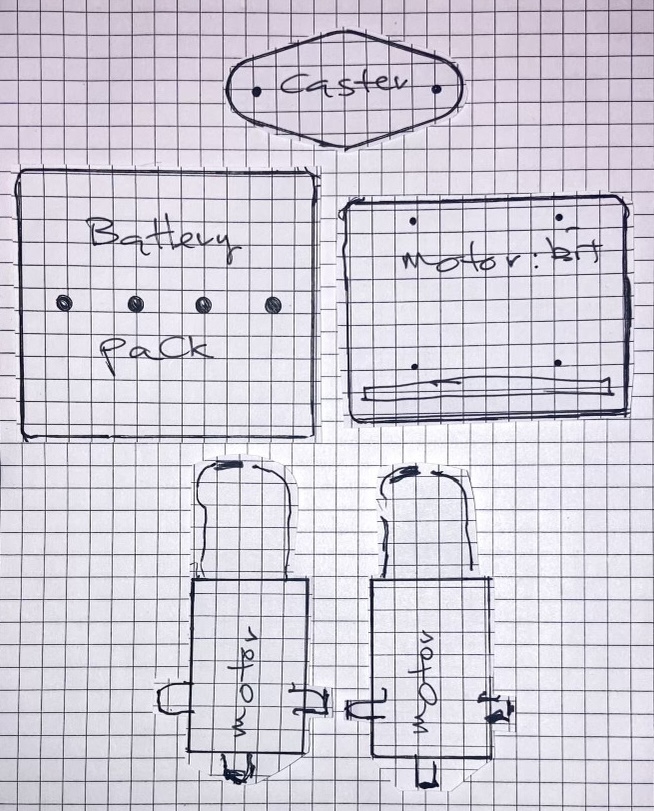 Caster
Battery
Pack
Motor:bit
motor
motor